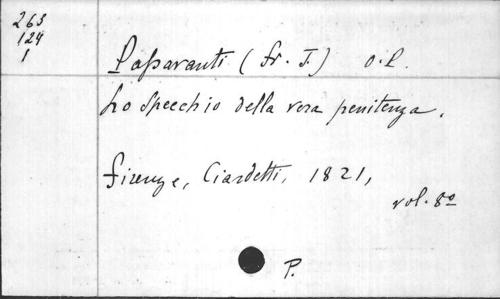 263
124
1
Passavanti (fr. J.) O. P.
Lo Specchio della vera penitenza.
Firenze, Ciardetti, 1821,
vol. 8º
P.